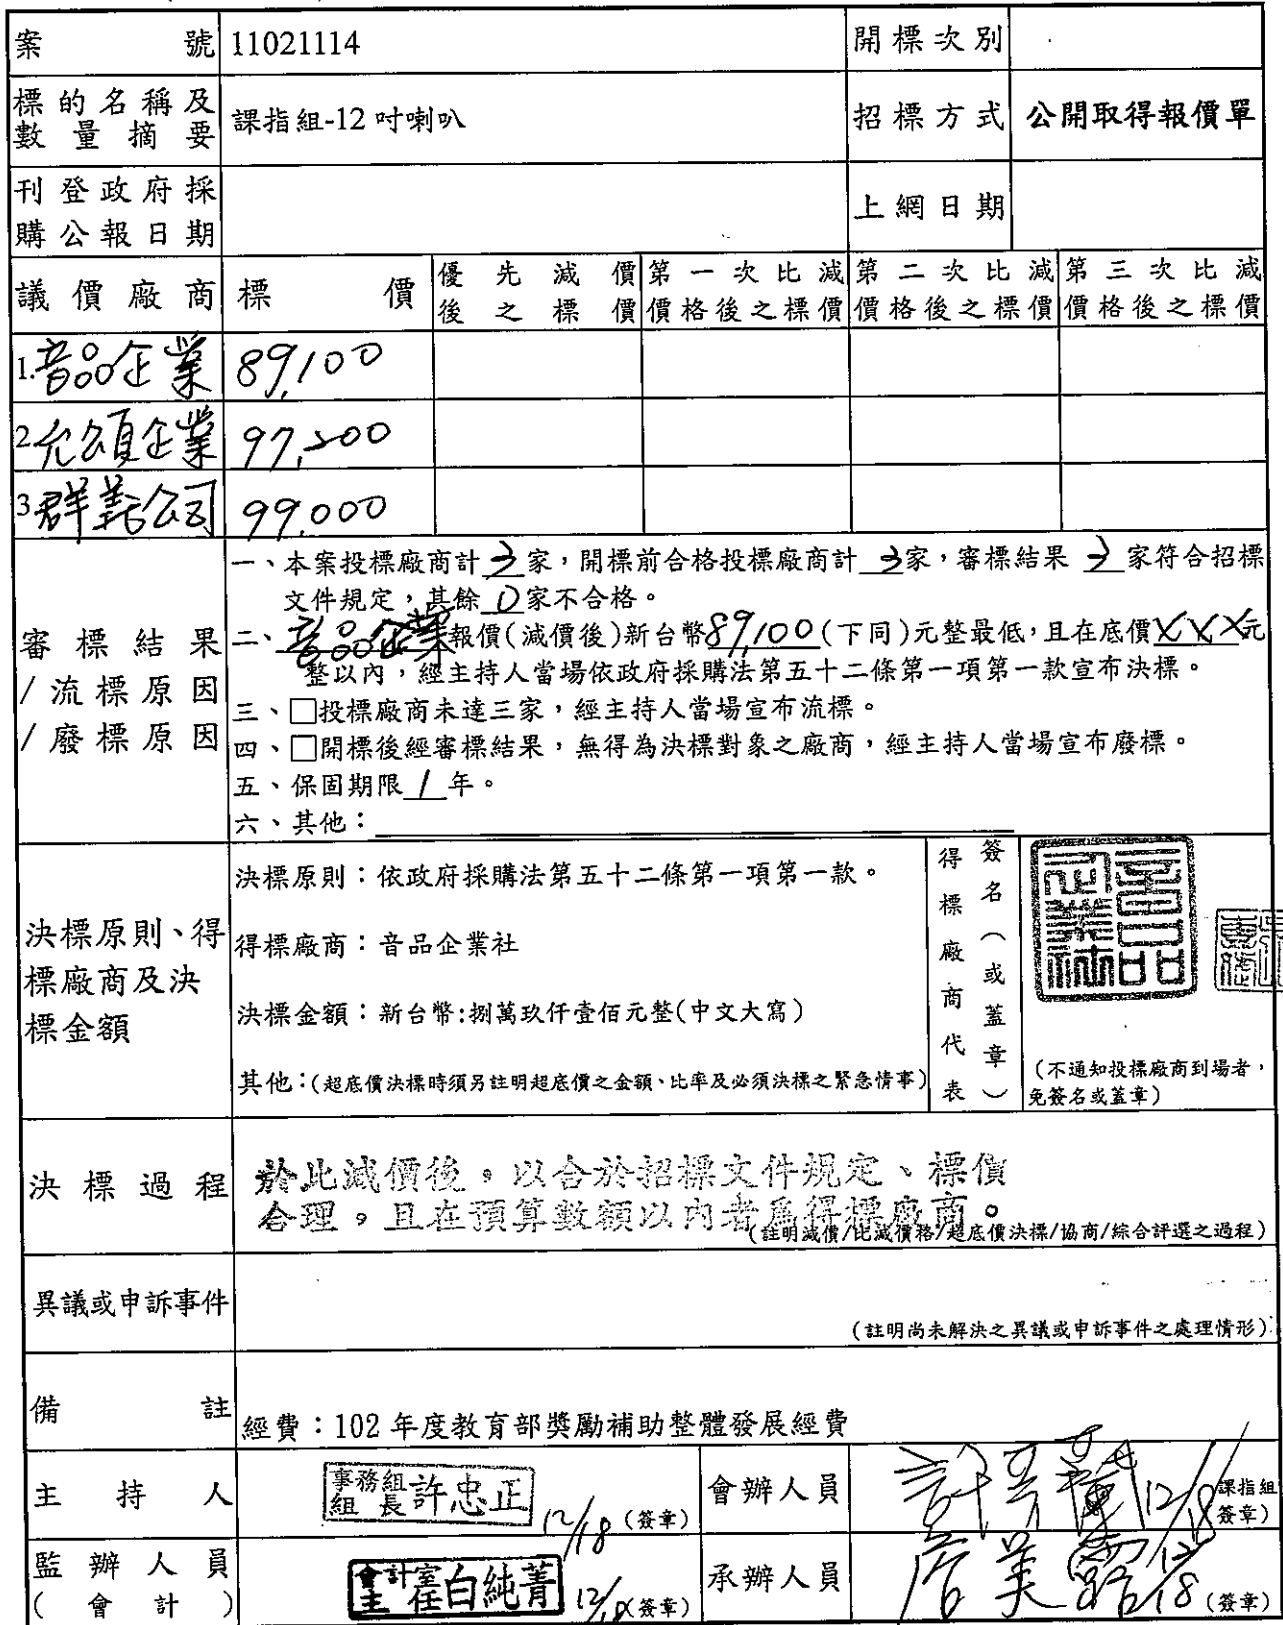 案號 11021114 開標次別
標的名稱及數量摘要 課指組-12 吋喇叭 招標方式 公開取得報價單
刊登政府採購公報日期 上網日期
議價廠商 標價 優先減價後之標價 第一次比減價格後之標價 第二次比減價格後之標價 第三次比減價格後之標價
1.音品企業 89,100
2允頌企業 97,200
3群義公司 99,000
審標結果/流標原因/廢標原因
一、本案投標廠商計 3 家，開標前合格投標廠商計 3家，審標結果 3 家符合招標
文件規定，其餘 0家不合格。
二、音品企業報價(減價後)新台幣89,100(下同)元整最低，且在底價XXX元
整以內，經主持人當場依政府採購法第五十二條第一項第一款宣布決標。
三、□投標廠商未達三家，經主持人當場宣布流標。
四、□開標後經審標結果，無得為決標對象之廠商，經主持人當場宣布廢標。
五、保固期限 1 年。
六、其他：
決標原則、得標廠商及決標金額
決標原則：依政府採購法第五十二條第一項第一款。
得標廠商：音品企業社
決標金額：新台幣:捌萬玖仟壹佰元整(中文大寫)
其他：(超底價決標時須另註明超底價之金額、比率及必須決標之緊急情事)
得標廠商代表
簽名（或蓋章）
音品企業社
(不通知投標廠商到場者，
免簽名或蓋章)
決標過程
於比減價後，以合於招標文件規定、標價
合理，且在預算數額以內者為得標廠商。
(註明減價/比減價格/超底價決標/協商/綜合評選之過程)
異議或申訴事件
(註明尚未解決之異議或申訴事件之處理情形)
備註 經費：102 年度教育部獎勵補助整體發展經費
主持人 事務組組長許忠正 12/18 (簽章) 會辦人員 12/18 課指組簽章)
監辦人員(會計) 會計室主任白純菁 12/18 (簽章) 承辦人員 詹美露 12/18 (簽章)